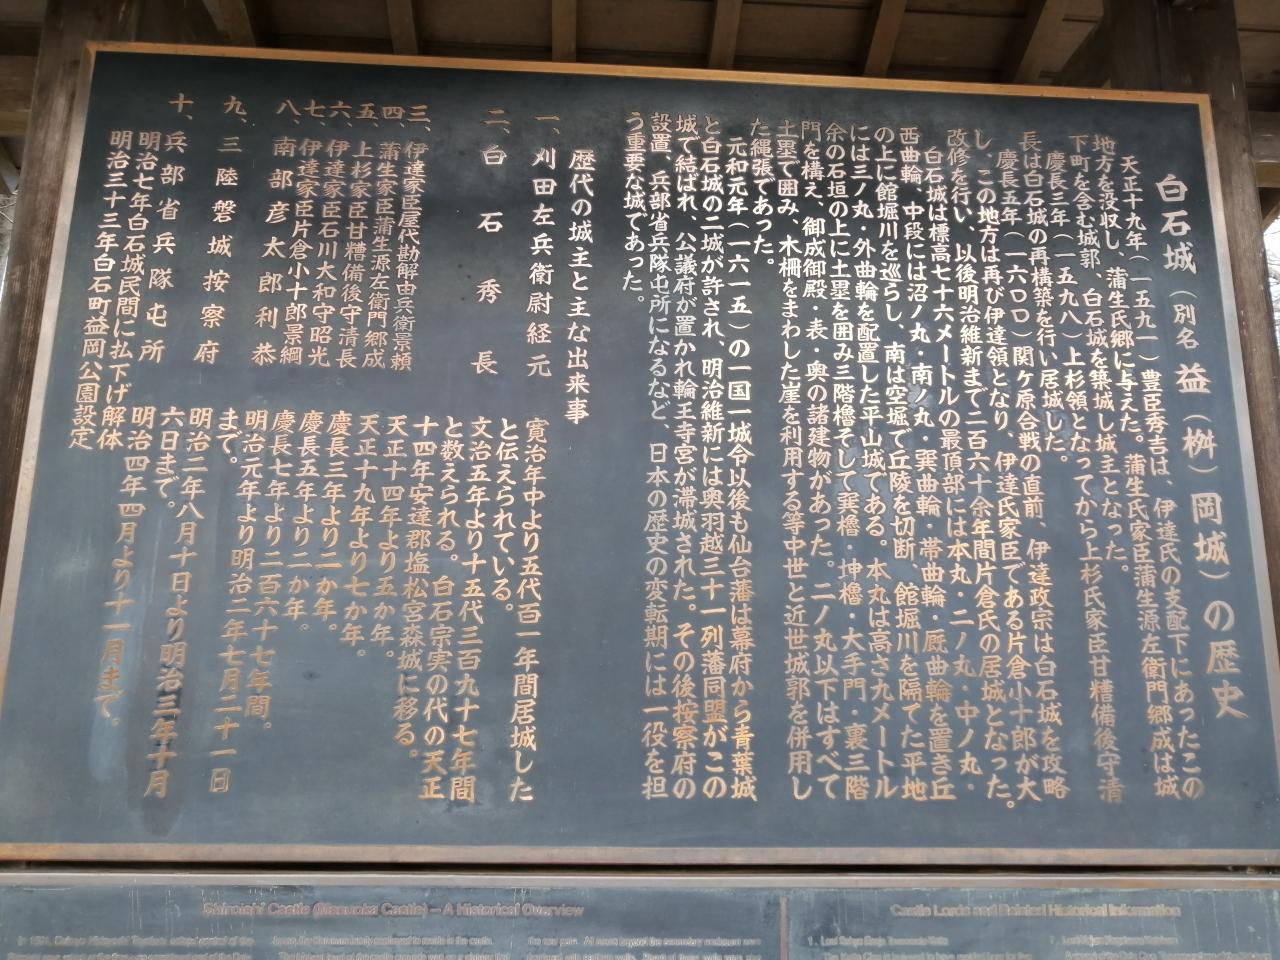 白石城（別名 益（桝）岡城）の歴史
天正十九年（一五九一）豊臣秀吉は、伊達氏の支配下にあったこの
地方を没収し、蒲生氏郷に与えた。蒲生氏家臣蒲生源左衛門郷成は城
下町を含む城郭、白石城を築城し城主となった。
慶長三年（一五九八）上杉領となってから上杉氏家臣甘糟備後守清
長は白石城の再構築を行い居城した。
慶長五年（一六〇〇）関ケ原合戦の直前、伊達政宗は白石城を攻略
し、この地方は再び伊達領となり、伊達氏家臣である片倉小十郎が大
改修を行い、以後明治維新まで二百六十余年間片倉氏の居城となった。
白石城は標高七十六メートルの最頂部には本丸・二ノ丸・中ノ丸・
西曲輪、中段には沼ノ丸・南ノ丸・巽曲輪・帯曲輪・厩曲輪を置き丘
の上に館堀川を巡らし、南は空堀で丘陵を切断、館堀川を隔てた平地
には三ノ丸・外曲輪を配置した平山城である。本丸は高さ九メートル
余の石垣の上に土塁を囲み三階櫓そして巽櫓・坤櫓・大手門・裏三階
門を構え、御成御殿・表・奥の諸建物があった。二ノ丸以下はすべて
土塁で囲み、木柵をまわした崖を利用する等中世と近世城郭を併用し
た縄張であった。
元和元年（一六一五）の一国一城令以後も仙台藩は幕府から青葉城
と白石城の二城が許され、明治維新には奥羽越三十一列藩同盟がこの
城で結ばれ、公議府が置かれ輪王寺宮が滞城された。その後按察府の
設置、兵部省兵隊屯所になるなど、日本の歴史の変転期には一役を担
う重要な城であった。
歴代の城主と主な出来事
一、刈田左兵衛尉経元 寛治年中より五代百一年間居城した
と伝えられている。
二、白石秀長 文治五年より十五代三百九十七年間
と数えられる。白石宗実の代の天正
十四年安達郡塩松宮森城に移る。
三、伊達家臣屋代勘解由兵衛景頼 天正十四年より五か年。
四、蒲生家臣蒲生源左衛門郷成 天正十九年より七か年。
五、上杉家臣甘糟備後守清長 慶長三年より二か年。
六、伊達家臣石川大和守昭光 慶長五年より二か年。
七、伊達家臣片倉小十郎景綱 慶長七年より二百六十七年間。
八、南部彦太郎利恭 明治元年より明治二年七月二十一日
まで。
九、三陸磐城按察府 明治二年八月十日より明治三年十月
六日まで。
十、兵部省兵隊屯所 明治四年四月より十一月まで。
明治七年白石城民間に払下げ解体
明治三十三年白石町益岡公園設定
Shiroishi Castle (Masuoka Castle) – A Historical Overview
Castle Lords and Related Historical Information